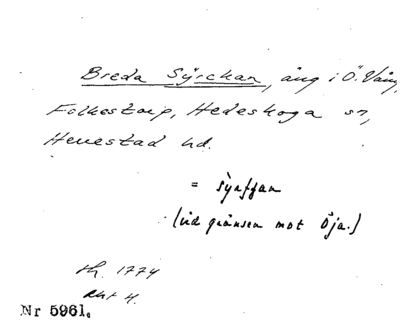 Breda Syrckan, äng i Ö. Vång,
Folkestorp, Hedeskoga sn,
Herrestad hd.
=
(vid gränsen mot Öja.)
sk. 1774
akt 4.
Nr 5961.